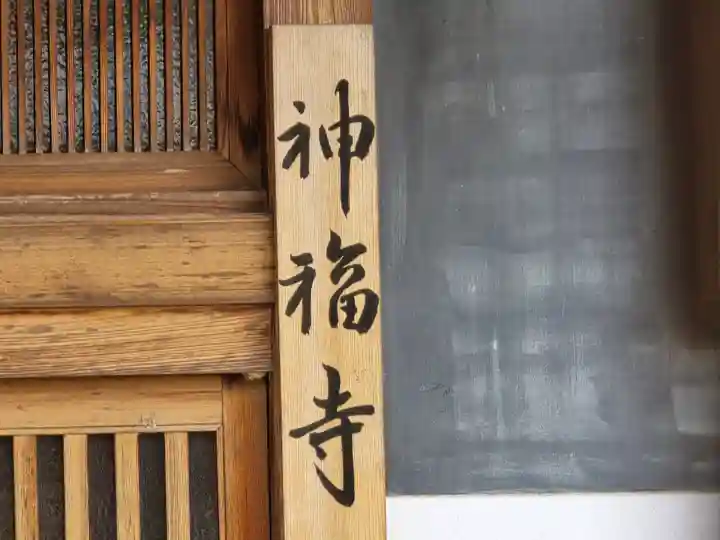 神福寺